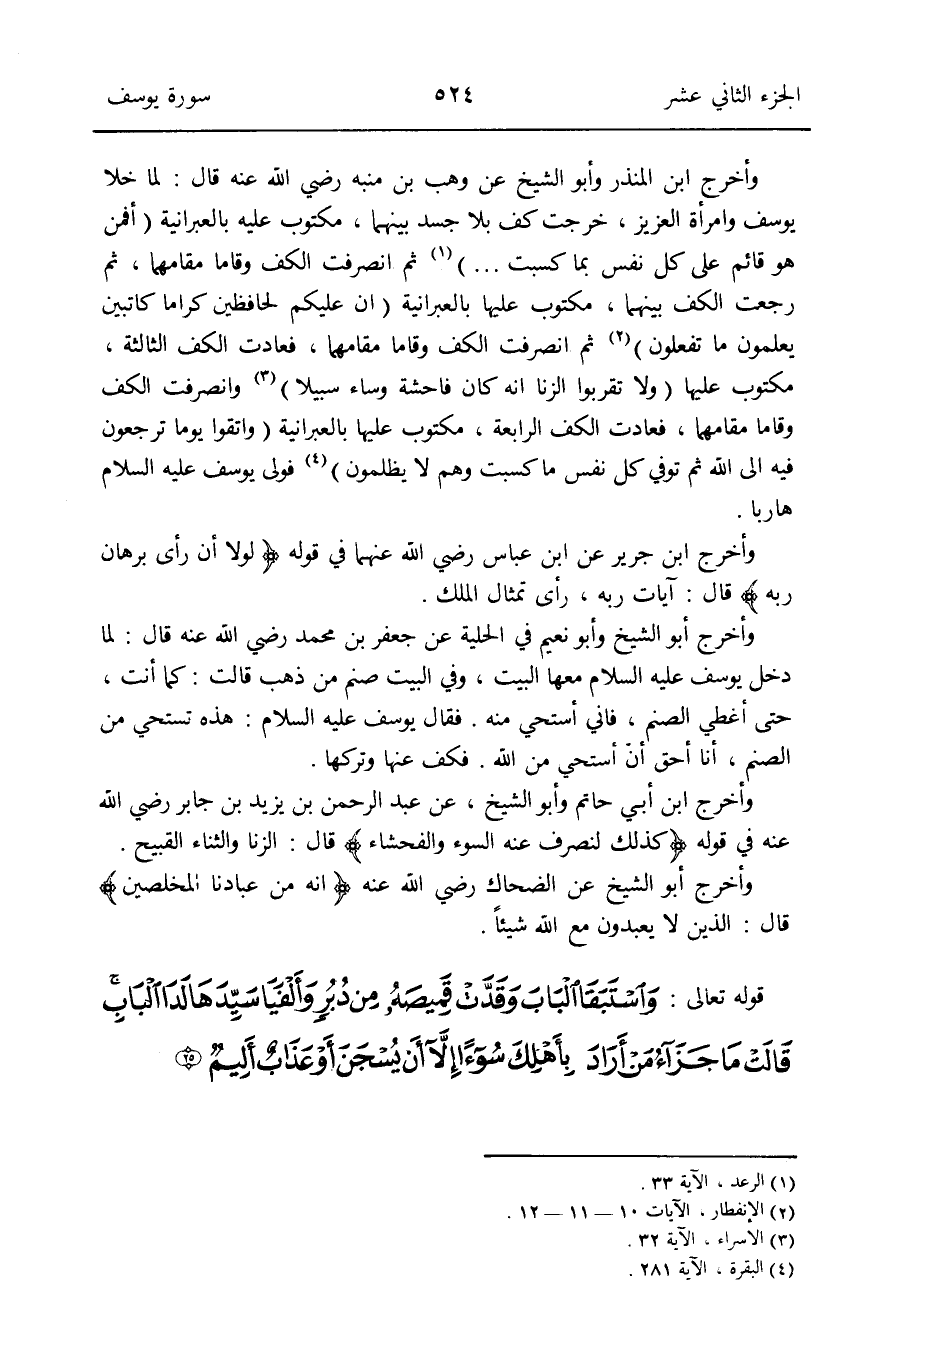 الجزء الثاني عشر ٥٢٤ سورة يوسف
وأخرج ابن المنذر وأبو الشيخ عن وهب بن منبه رضي الله عنه قال : لما خلا
يوسف وامرأة العزيز ، خرجت كف بلا جسد بينهما ، مكتوب عليه بالعبرانية ( أفمن
هو قائم على كل نفس بما كسبت ... )(١) ثم انصرفت الكف وقاما مقامهما ، ثم
رجعت الكف بينهما ، مكتوب عليها بالعبرانية ( ان عليكم لحافظين كراما كاتبين
يعلمون ما تفعلون )(٢) ثم انصرفت الكف وقاما مقامهما ، فعادت الكف الثالثة ،
مكتوب عليها ( ولا تقربوا الزنا انه كان فاحشة وساء سبيلا )(٣) وانصرفت الكف
وقاما مقامهما ، فعادت الكف الرابعة ، مكتوب عليها بالعبرانية ( واتقوا يوما ترجعون
فيه الى الله ثم توفي كل نفس ما كسبت وهم لا يظلمون )(٤) فولى يوسف عليه السلام
هاربا .
وأخرج ابن جرير عن ابن عباس رضي الله عنهما في قوله ﴿ لولا أن رأى برهان
ربه ﴾ قال : آيات ربه ، رأى تمثال الملك .
وأخرج أبو الشيخ وأبو نعيم في الحلية عن جعفر بن محمد رضي الله عنه قال : لما
دخل يوسف عليه السلام معها البيت ، وفي البيت صنم من ذهب قالت : كما أنت ،
حتى أغطي الصنم ، فاني أستحي منه . فقال يوسف عليه السلام : هذه تستحي من
الصنم ، أنا أحق أنّ أستحي من الله . فكف عنها وتركها .
وأخرج ابن أبي حاتم وأبو الشيخ ، عن عبد الرحمن بن يزيد بن جابر رضي الله
عنه في قوله ﴿ كذلك لنصرف عنه السوء والفحشاء ﴾ قال : الزنا والثناء القبيح .
وأخرج أبو الشيخ عن الضحاك رضي الله عنه ﴿ انه من عبادنا المخلصين ﴾
قال : الذين لا يعبدون مع الله شيئاً .
قوله تعالى : وَٱسْتَبَقَا ٱلْبَابَ وَقَدَّتْ قَمِيصَهُۥ مِن دُبُرٍ وَأَلْفَيَا سَيِّدَهَا لَدَا ٱلْبَابِ ۚ
قَالَتْ مَا جَزَآءُ مَنْ أَرَادَ بِأَهْلِكَ سُوٓءًا إِلَّآ أَن يُسْجَنَ أَوْ عَذَابٌ أَلِيمٌ ٢٥
(١) الرعد ، الآية ٣٣ .
(٢) الإنفطار ، الآيات ١٠ — ١١ — ١٢ .
(٣) الاسراء ، الآية ٣٢ .
(٤) البقرة ، الآية ٢٨١ .